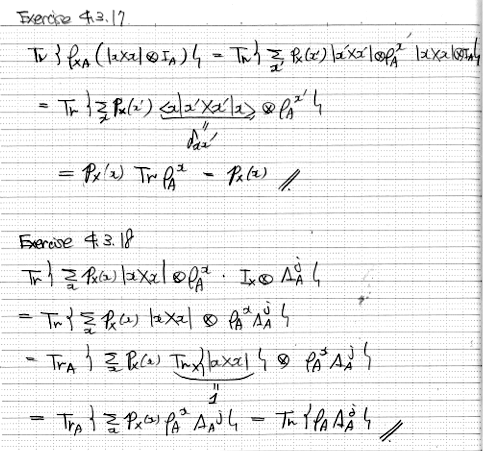 Exercise 4.3.17
Tr { ρ_XA ( |x⟩⟨x| ⊗ I_A ) } = Tr { Σ_x' P_X(x') |x'⟩⟨x'| ⊗ ρ_A^x' |x⟩⟨x| ⊗ I_A }
= Tr { Σ_x' P_X(x') ⟨x|x'⟩⟨x'|x⟩ ⊗ ρ_A^x' }
= δ_xx'
= P_X(x) Tr ρ_A^x = P_X(x) //
Exercise 4.3.18
Tr { Σ_x P_X(x) |x⟩⟨x| ⊗ ρ_A^x · I_X ⊗ Λ_A^j }
= Tr { Σ_x P_X(x) |x⟩⟨x| ⊗ ρ_A^x Λ_A^j }
= Tr_A { Σ_x P_X(x) Tr_X { |x⟩⟨x| } ⊗ ρ_A^x Λ_A^j }
= 1
= Tr_A { Σ_x P_X(x) ρ_A^x Λ_A^j } = Tr { ρ_A Λ_A^j } //